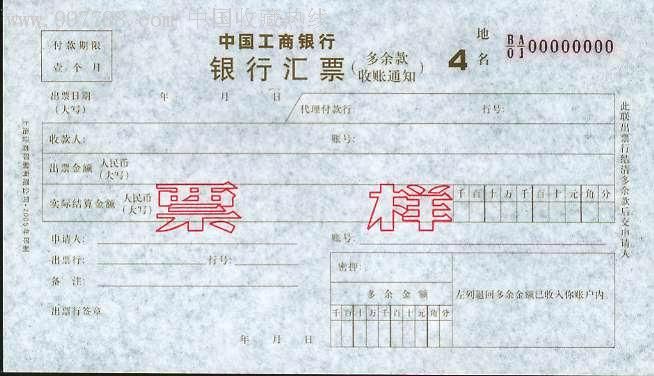 www.997788.com 中国收藏热线
付款期限
壹个月
中国工商银行
银行汇票（多余款收账通知） 4
地名
BA
01 00000000
出票日期
（大写） 年 月 日
代理付款行： 行号：
收款人： 账号：
出票金额 人民币
（大写）
实际结算金额 人民币
（大写）
千百十万千百十元角分
票样
申请人： 账号：
出票行： 行号：
备注：
出票行签章
年 月 日
密押：
多余金额
千百十万千百十元角分
左列退回多余金额已收入你账户内。
此联出票行结清多余款后交申请人